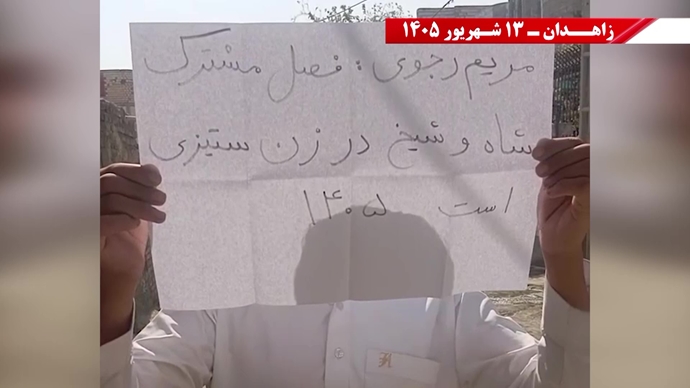 زاهـدان ــ ۱۳ شهریور ۱۴۰۵
مریم رجوی: فصل مشترک
شاه و شیخ در زن ستیزی
است ۱۴۰۵